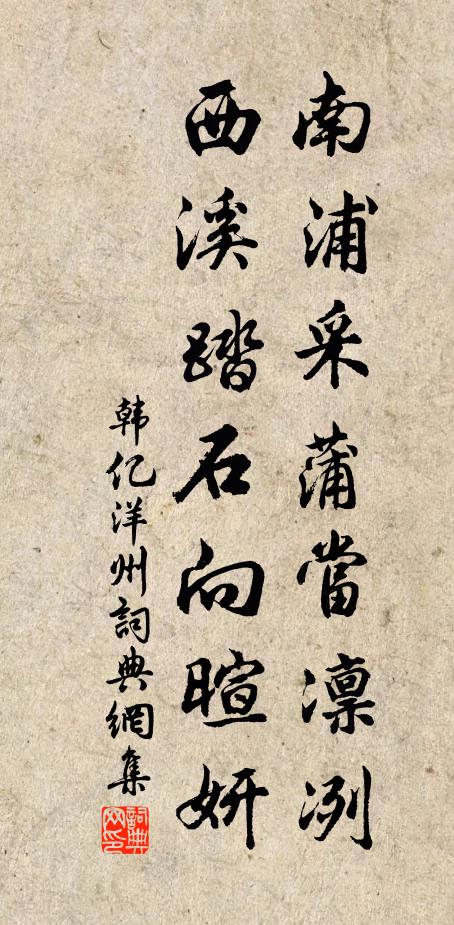 南浦采蒲當凛冽
西溪踏石向暄妍
韩亿洋州詞典網集
詞典網印